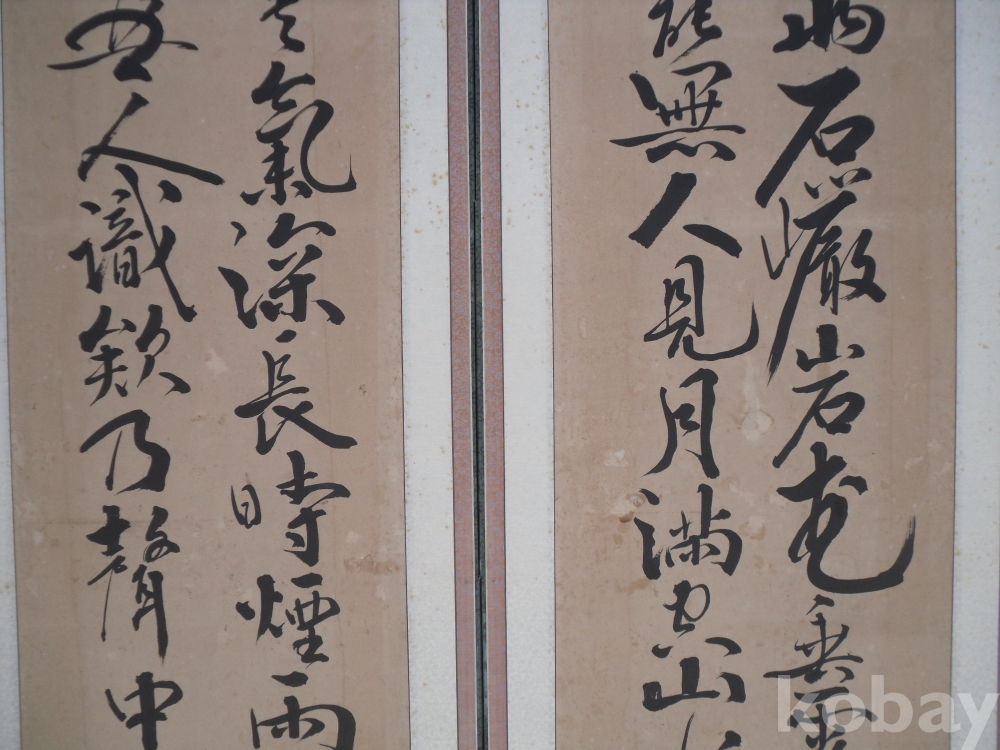 石巖岩花垂
無人見月滿空山
氣深長時煙雨
人識欸乃聲中
kobay